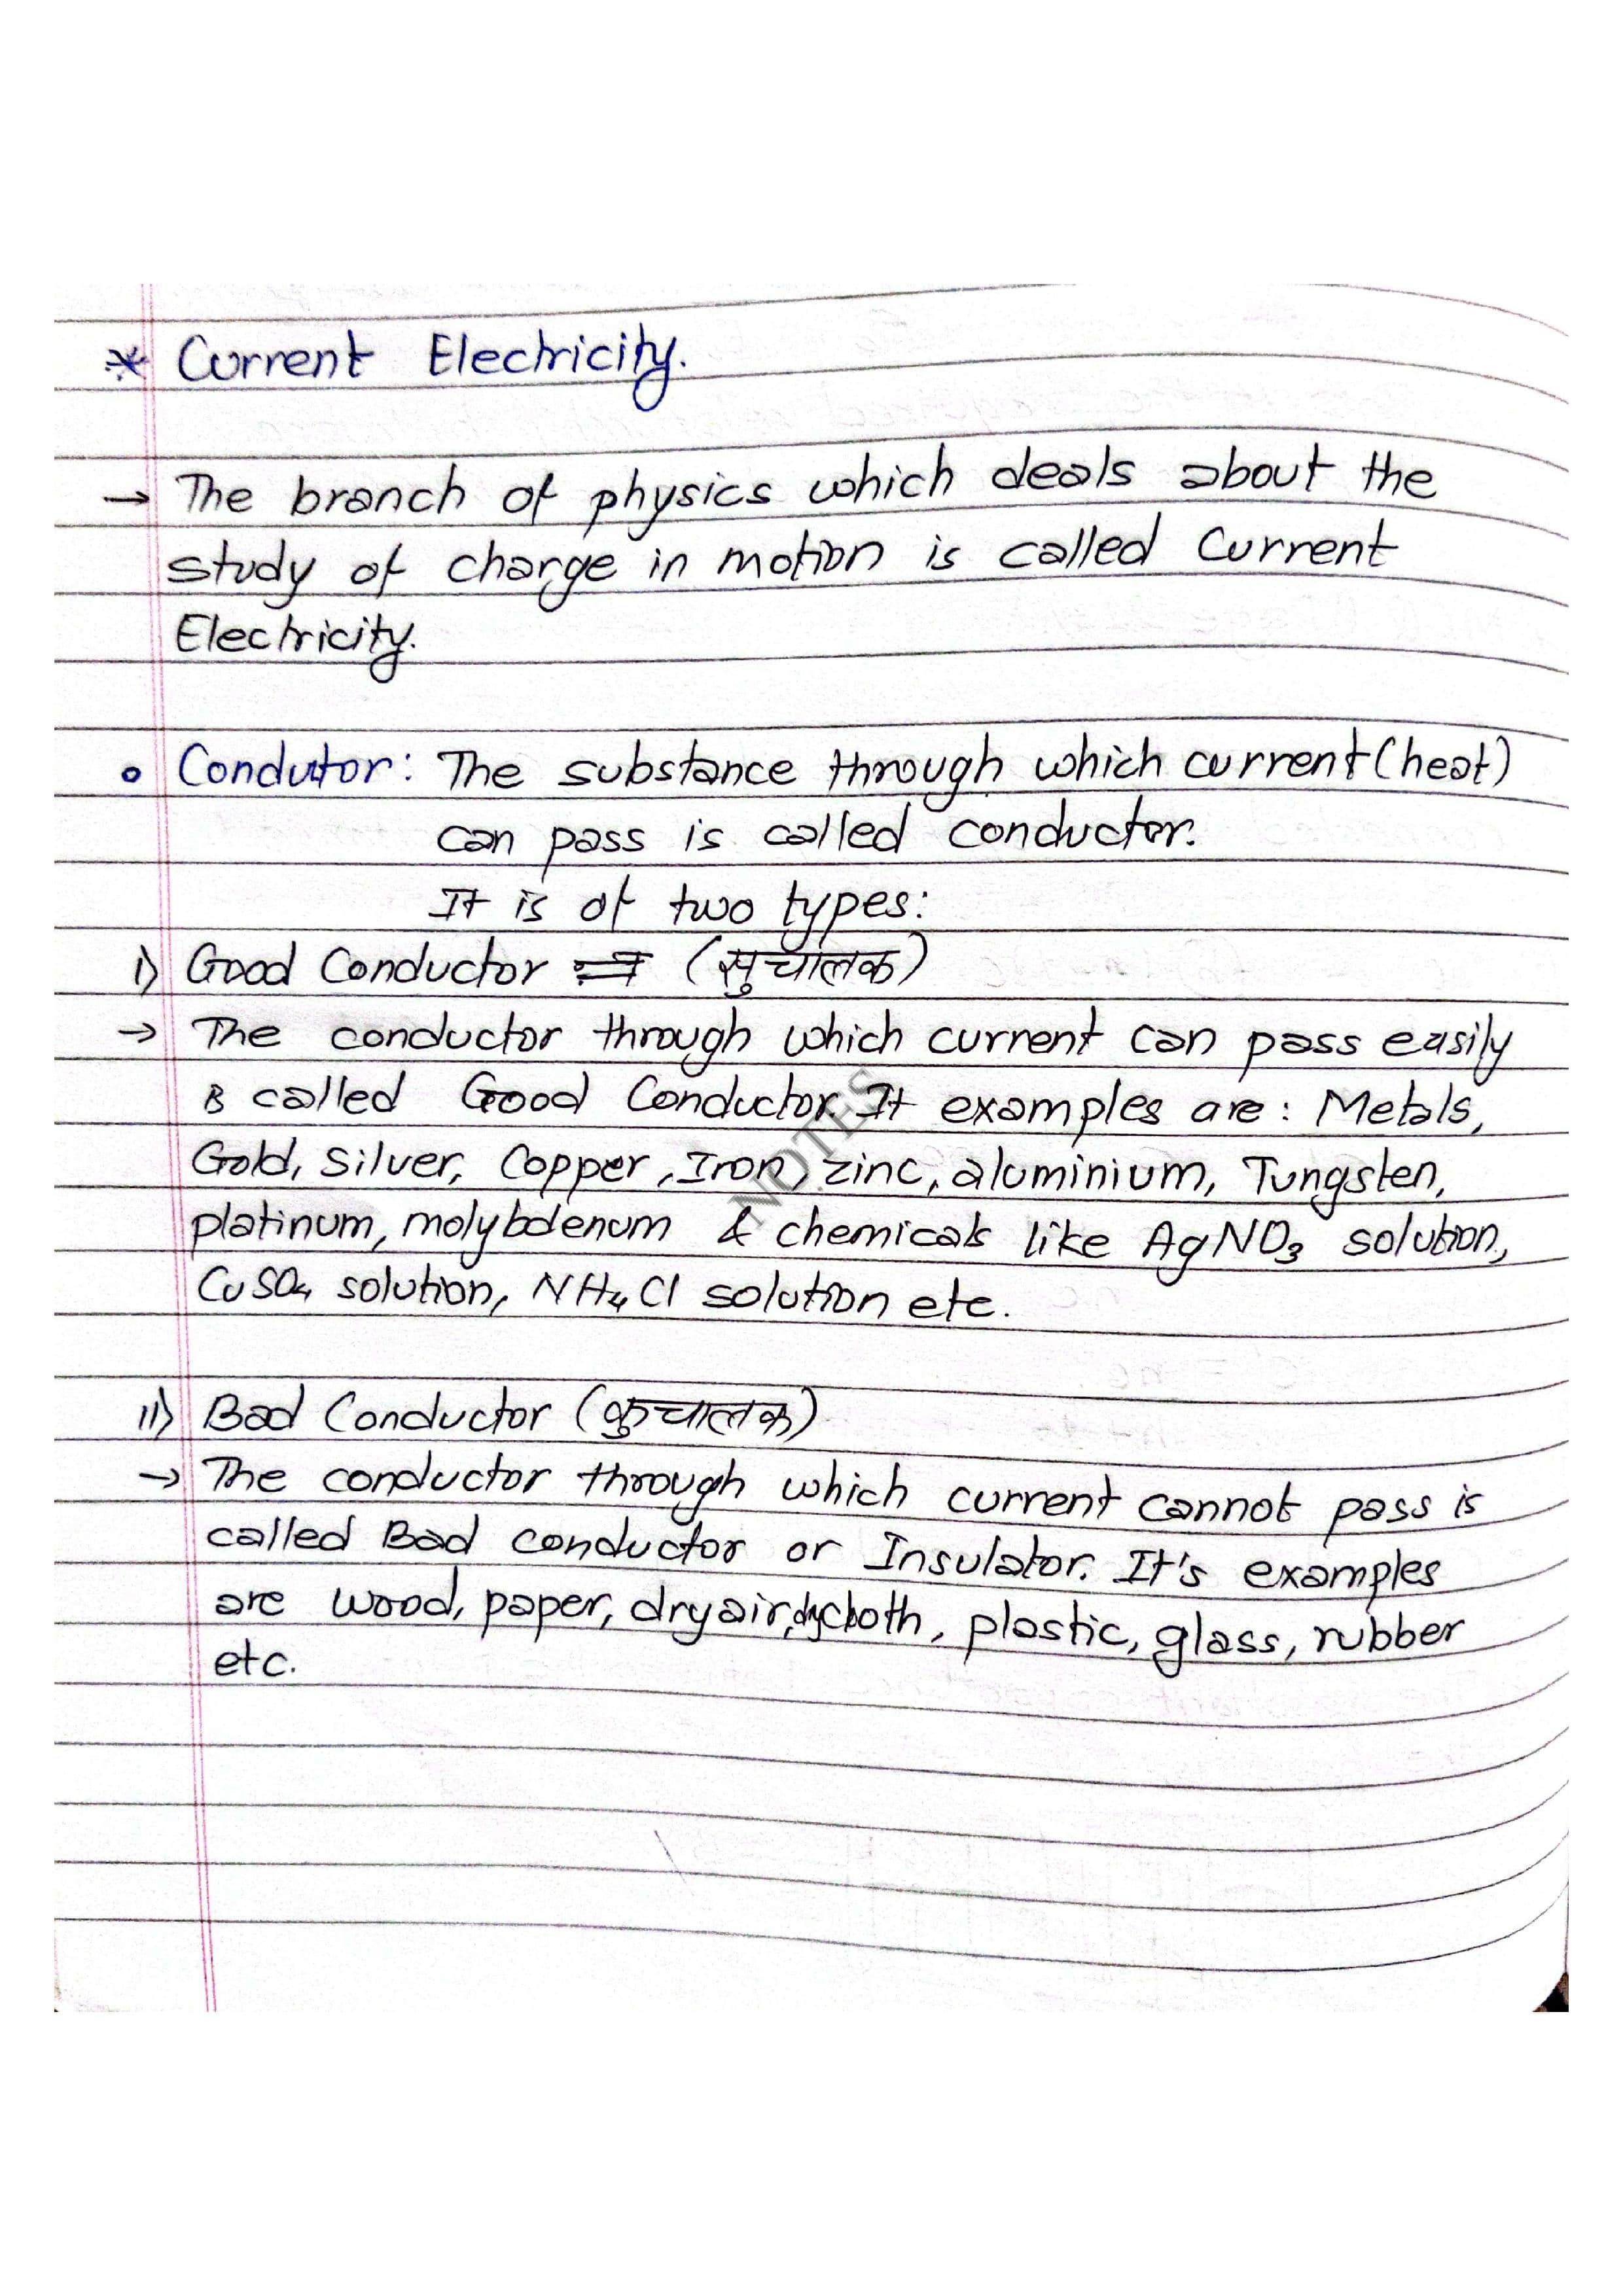 * Current Electricity.
→ The branch of physics which deals about the
study of charge in motion is called Current
Electricity.
• Condutor: The substance through which current (heat)
can pass is called conductor.
It is of two types:
i) Good Conductor (सुचालक)
→ The conductor through which current can pass easily
is called Good Conductor. It examples are: Metals,
Gold, Silver, Copper, Iron, zinc, aluminium, Tungsten,
platinum, molybdenum & chemicals like AgNO₃ solution,
CuSO₄ solution, NH₄Cl solution etc.
ii) Bad Conductor (कुचालक)
→ The conductor through which current cannot pass is
called Bad conductor or Insulator. It's examples
are wood, paper, dry air, dry cloth, plastic, glass, rubber
etc.
NOTES